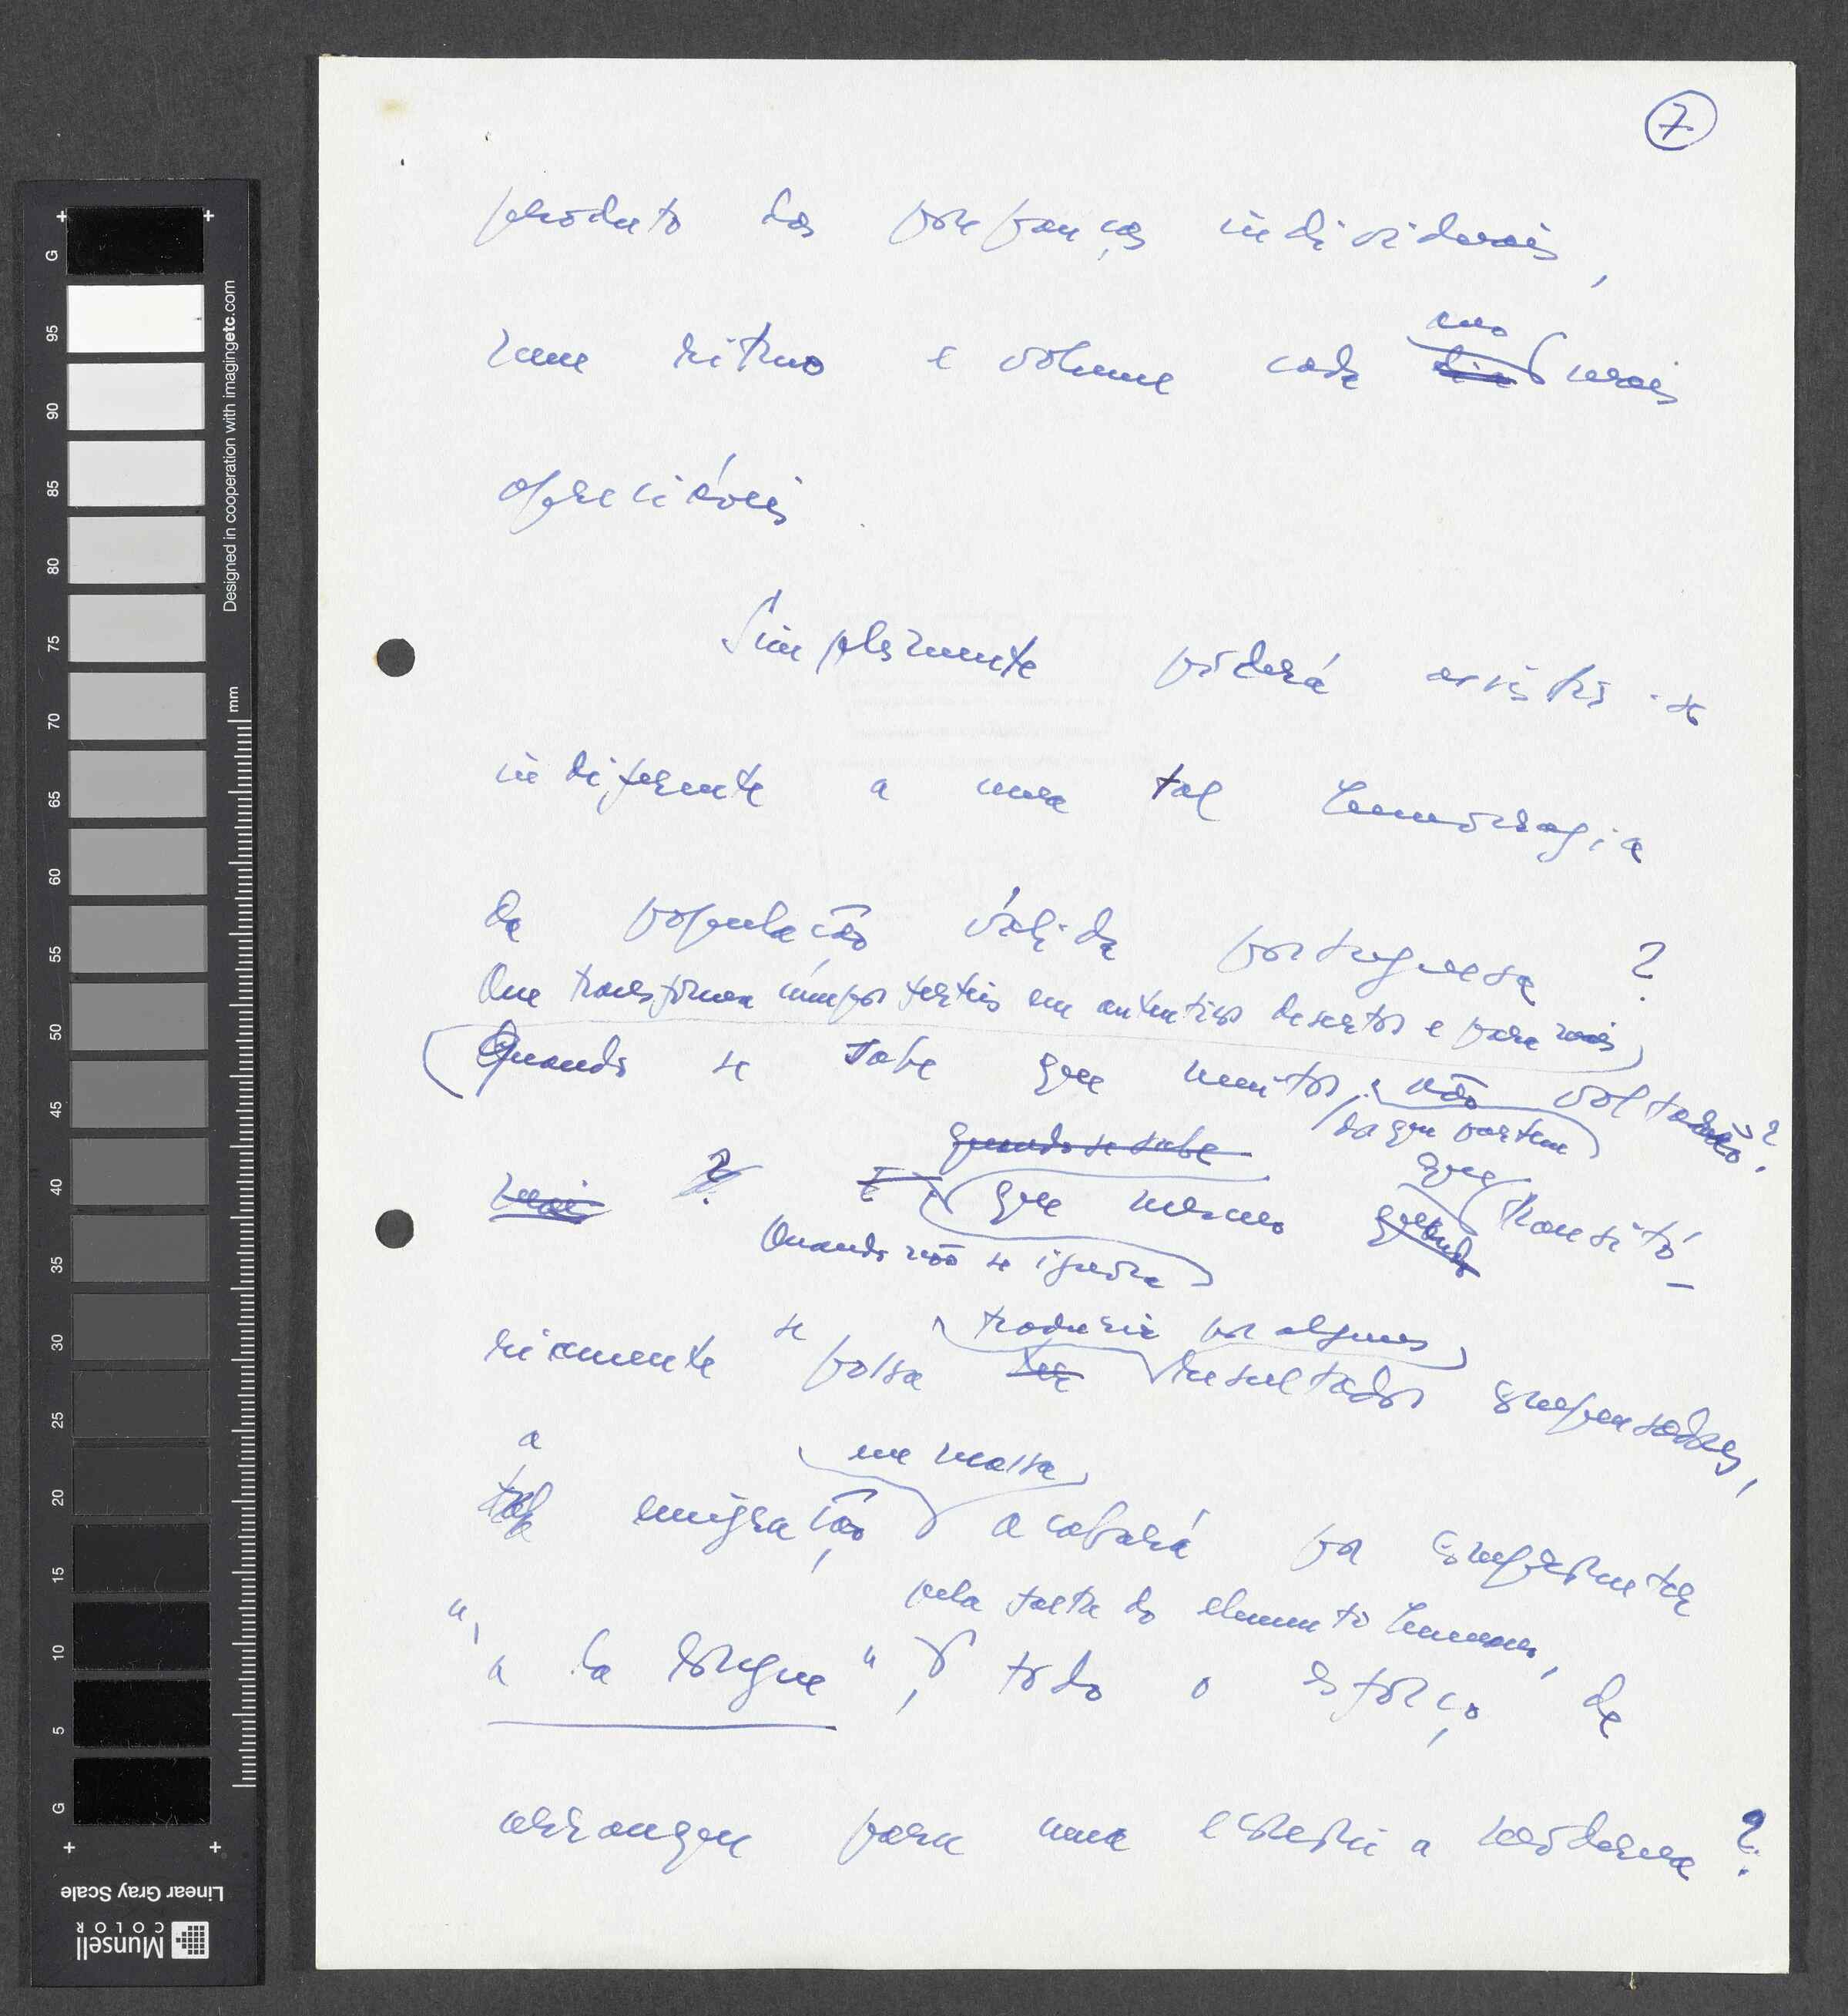 7
produto das poupanças individuais,
num ritmo e volume cada ano
dia mais
apreciáveis.
Simplesmente poderá assistir-se
indiferente a uma tal hemorragia
da população válida portuguesa?
Que transforma campos férteis em autênticos desertos e para mais
Quando se sabe que muitos não voltarão?
quando se sabe da que partem
mais ? E que mesmo que transitó-
Quando não se ignora
se traduzir por alguns
riamente possa ter resultados compensadores,
a em massa
tal emigração acabará por comprometer
pela falta do elemento humano,
"à la longue", todo o esforço de
arranque para uma economia moderna?
G 95 90 85 80 75 70 65 60 55 50 45 40 35 30 25 20 15 10 5 G
mm
Designed in cooperation with imagingetc.com
Linear Gray Scale
Munsell
COLOR